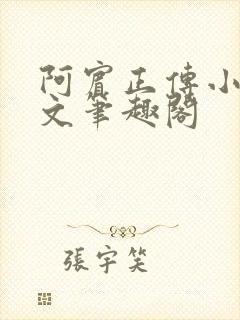 阿賓正傳小
文筆趣閣
張宇笑